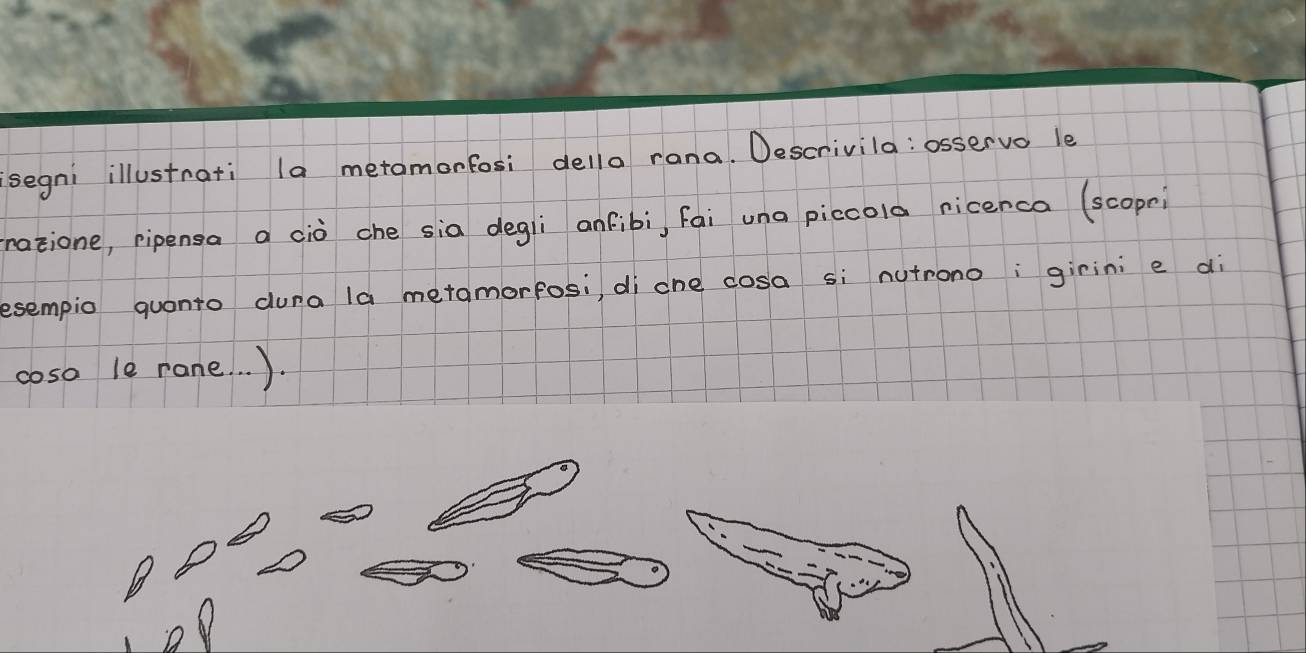 isegni illustrati la metamorfosi della rana. Descrivila: osservo le
razione, ripensa a ciò che sia degli anfibi, fai una piccola ricerca (scopri
esempio quanto dura la metamorfosi, di che cosa si nutrono i girini e di
cosa le rane...).